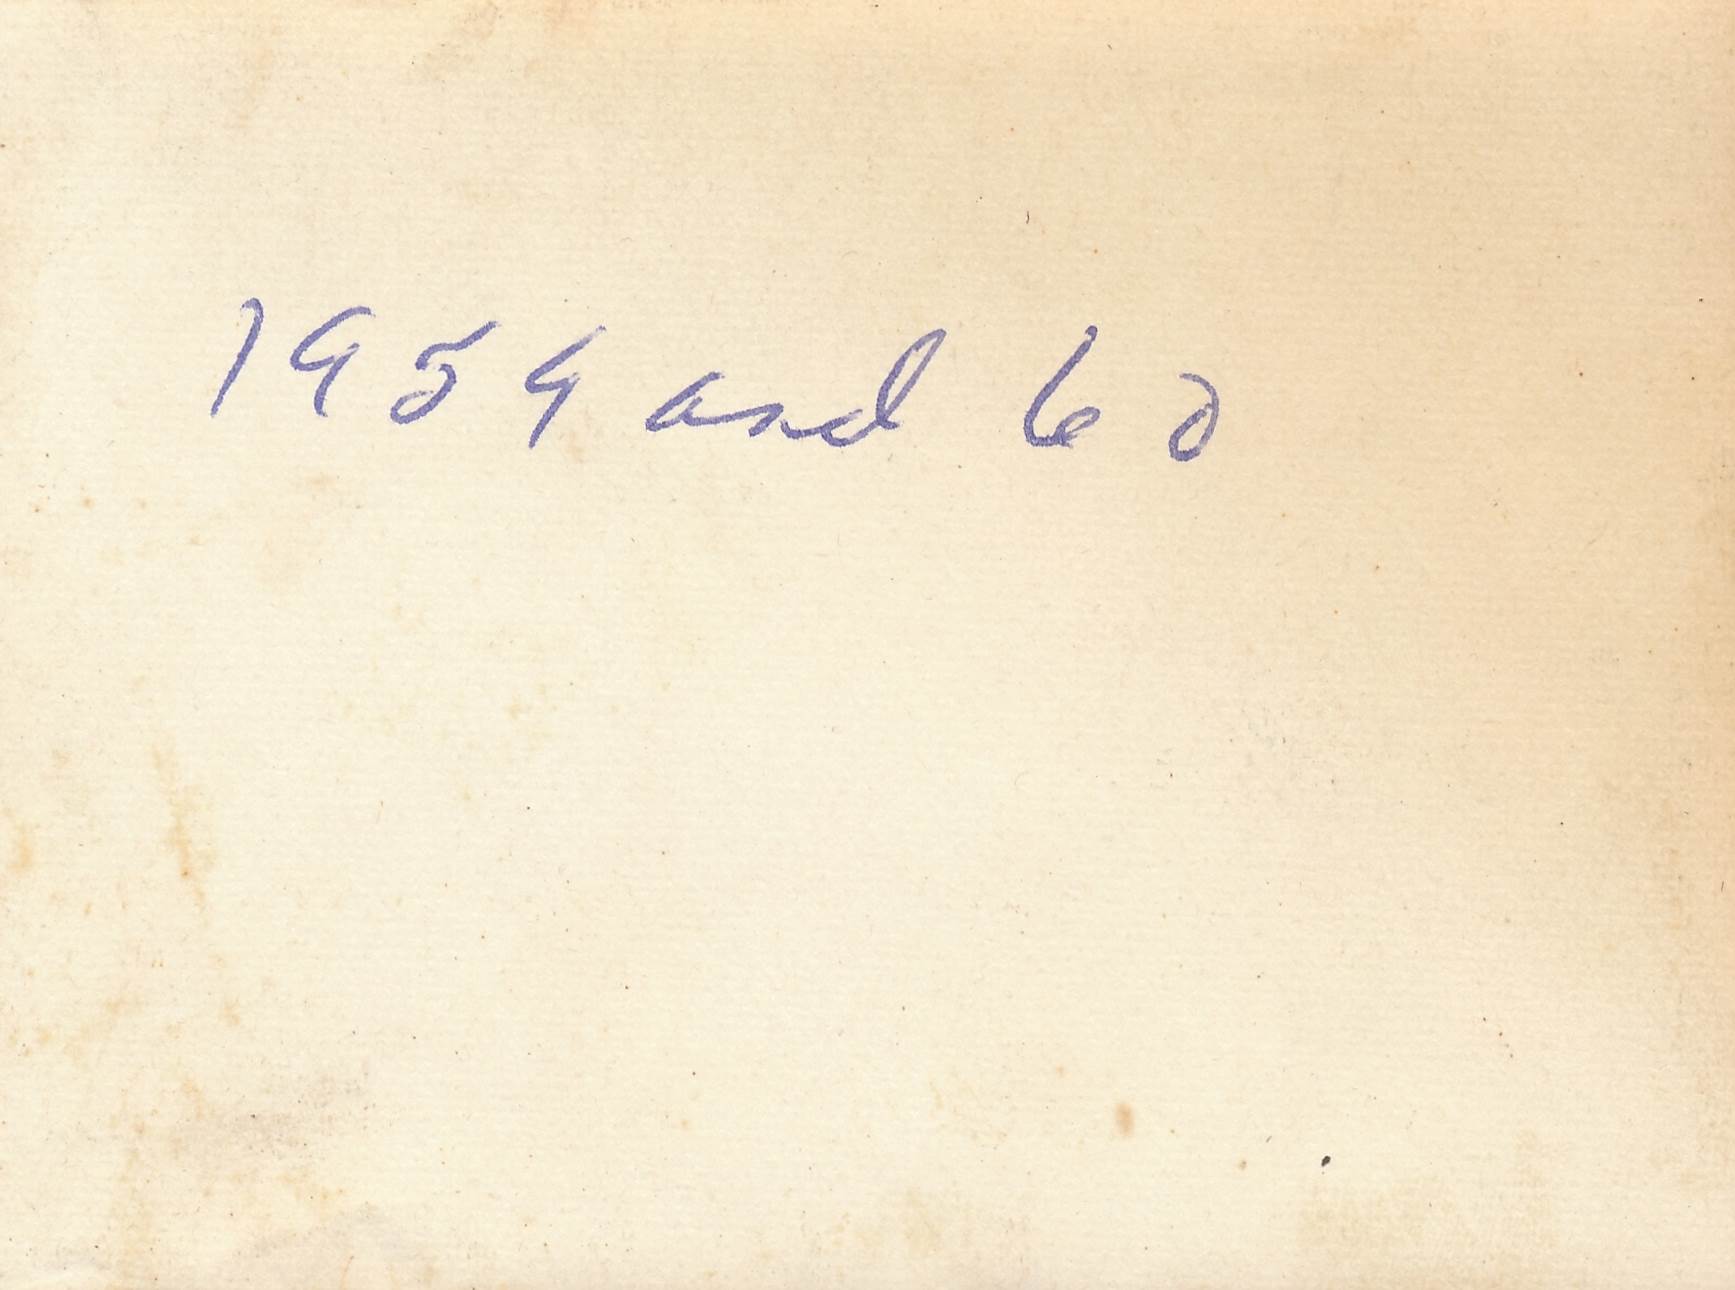 1959 and 60